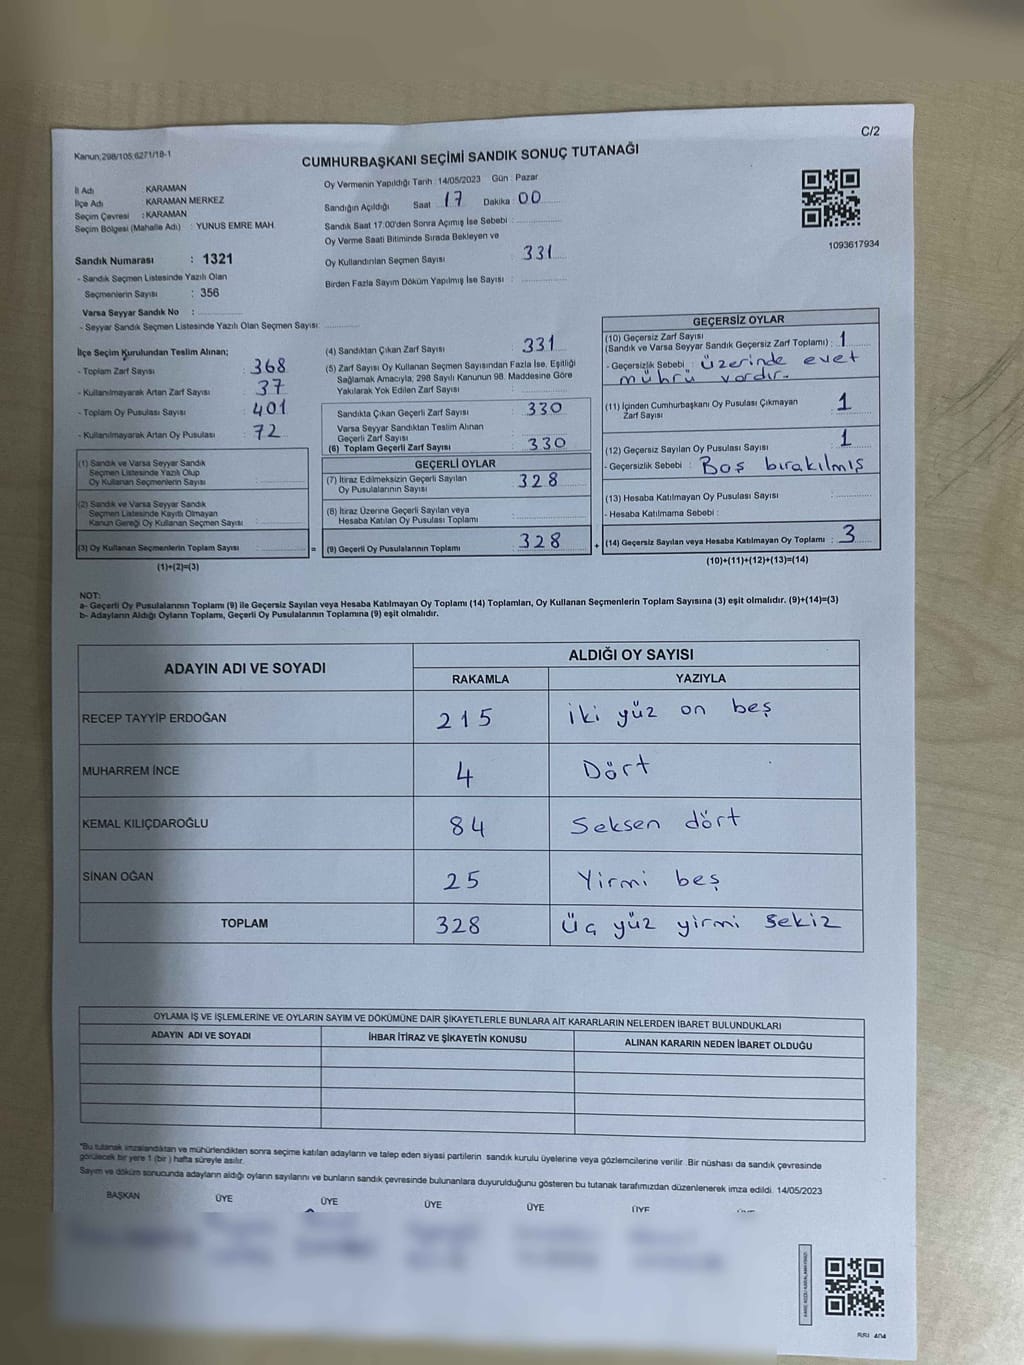 Kanun;298/105;6271/18-1
C/2
CUMHURBAŞKANI SEÇİMİ SANDIK SONUÇ TUTANAĞI
İl Adı : KARAMAN
İlçe Adı : KARAMAN MERKEZ
Seçim Çevresi : KARAMAN
Seçim Bölgesi (Mahalle Adı) : YUNUS EMRE MAH
Sandık Numarası : 1321
- Sandık Seçmen Listesinde Yazılı Olan
Seçmenlerin Sayısı : 356
Varsa Seyyar Sandık No :
- Seyyar Sandık Seçmen Listesinde Yazılı Olan Seçmen Sayısı:
Oy Vermenin Yapıldığı Tarih : 14/05/2023 Gün : Pazar
Sandığın Açıldığı Saat : 17 Dakika : 00
Sandık Saat 17:00'den Sonra Açımış İse Sebebi :
Oy Verme Saati Bitiminde Sırada Bekleyen ve
Oy Kullandırılan Seçmen Sayısı : 331
Birden Fazla Sayım Döküm Yapılmış İse Sayısı :
1093617934
İlçe Seçim Kurulundan Teslim Alınan;
- Toplam Zarf Sayısı : 368
- Kullanılmayarak Artan Zarf Sayısı : 37
- Toplam Oy Pusulası Sayısı : 401
- Kullanılmayarak Artan Oy Pusulası : 72
(1) Sandık ve Varsa Seyyar Sandık
Seçmen Listesinde Yazılı Olup
Oy Kullanan Seçmenlerin Sayısı :
(2) Sandık ve Varsa Seyyar Sandık
Seçmen Listesinde Kayıtlı Olmayan
Kanun Gereği Oy Kullanan Seçmen Sayısı :
(3) Oy Kullanan Seçmenlerin Toplam Sayısı : =
(1)+(2)=(3)
(4) Sandıktan Çıkan Zarf Sayısı : 331
(5) Zarf Sayısı Oy Kullanan Seçmen Sayısından Fazla İse, Eşitliği
Sağlamak Amacıyla; 298 Sayılı Kanunun 98. Maddesine Göre
Yakılarak Yok Edilen Zarf Sayısı :
Sandıkta Çıkan Geçerli Zarf Sayısı : 330
Varsa Seyyar Sandıktan Teslim Alınan
Geçerli Zarf Sayısı :
(6) Toplam Geçerli Zarf Sayısı : 330
GEÇERLİ OYLAR
(7) İtiraz Edilmeksizin Geçerli Sayılan
Oy Pusulalarının Sayısı : 328
(8) İtiraz Üzerine Geçerli Sayılan veya
Hesaba Katılan Oy Pusulası Toplamı :
(9) Geçerli Oy Pusulalarının Toplamı : 328 +
GEÇERSİZ OYLAR
(10) Geçersiz Zarf Sayısı
(Sandık ve Varsa Seyyar Sandık Geçersiz Zarf Toplamı) : 1
- Geçersizlik Sebebi : Üzerinde evet
mührü vardır.
(11) İçinden Cumhurbaşkanı Oy Pusulası Çıkmayan
Zarf Sayısı : 1
(12) Geçersiz Sayılan Oy Pusulası Sayısı : 1
- Geçersizlik Sebebi : Boş bırakılmış
(13) Hesaba Katılmayan Oy Pusulası Sayısı :
- Hesaba Katılmama Sebebi :
(14) Geçersiz Sayılan veya Hesaba Katılmayan Oy Toplamı : 3
(10)+(11)+(12)+(13)=(14)
NOT:
a- Geçerli Oy Pusulalarının Toplamı (9) ile Geçersiz Sayılan veya Hesaba Katılmayan Oy Toplamı (14) Toplamları, Oy Kullanan Seçmenlerin Toplam Sayısına (3) eşit olmalıdır. (9)+(14)=(3)
b- Adayların Aldığı Oyların Toplamı, Geçerli Oy Pusulalarının Toplamına (9) eşit olmalıdır.
ADAYIN ADI VE SOYADI
ALDIĞI OY SAYISI
RAKAMLA YAZIYLA
RECEP TAYYİP ERDOĞAN 215 iki yüz on beş
MUHARREM İNCE 4 Dört
KEMAL KILIÇDAROĞLU 84 Seksen dört
SİNAN OĞAN 25 Yirmi beş
TOPLAM 328 Üç yüz yirmi sekiz
OYLAMA İŞ VE İŞLEMLERİNE VE OYLARIN SAYIM VE DÖKÜMÜNE DAİR ŞİKAYETLERLE BUNLARA AİT KARARLARIN NELERDEN İBARET BULUNDUKLARI
ADAYIN ADI VE SOYADI İHBAR İTİRAZ VE ŞİKAYETİN KONUSU ALINAN KARARIN NEDEN İBARET OLDUĞU
*Bu tutanak imzalandıktan ve mühürlendikten sonra seçime katılan adayların ve talep eden siyasi partilerin sandık kurulu üyelerine veya gözlemcilerine verilir. Bir nüshası da sandık çevresinde
görülecek bir yere 1 (bir ) hafta süreyle asılır.
Sayım ve döküm sonucunda adayların aldığı oyların sayılarını ve bunların sandık çevresinde bulunanlara duyurulduğunu gösteren bu tutanak tarafımızdan düzenlenerek imza edildi. 14/05/2023
BAŞKAN ÜYE ÜYE ÜYE ÜYE ÜYE